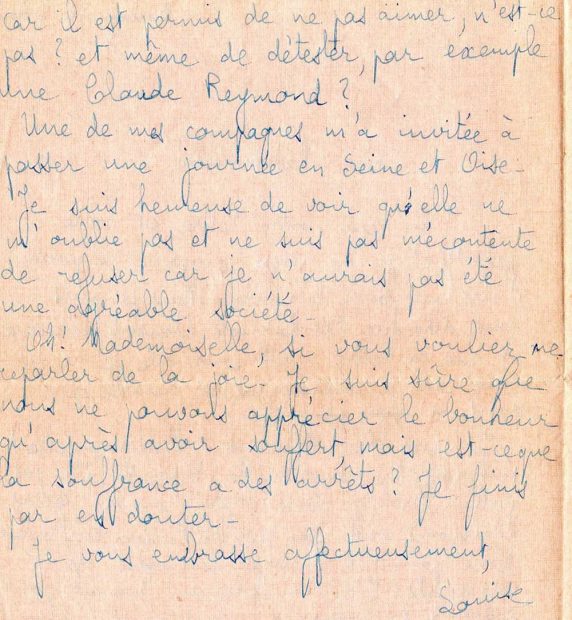 car il est permis de ne pas aimer, n'est-ce
pas ? et même de détester, par exemple
une Claude Reymond ?
Une de mes compagnes m'a invitée à
passer une journée en Seine et Oise -
Je suis heureuse de voir qu'elle ne
m'oublie pas et ne suis pas mécontente
de refuser car je n'aurais pas été
une agréable société -
Oh! Mademoiselle, si vous vouliez me
reparler de la joie. Je suis sûre que
nous ne pouvons apprécier le bonheur
qu'après avoir souffert, mais est-ce que
la souffrance a des arrêts ? Je finis
par en douter -
Je vous embrasse affectueusement,
Louise